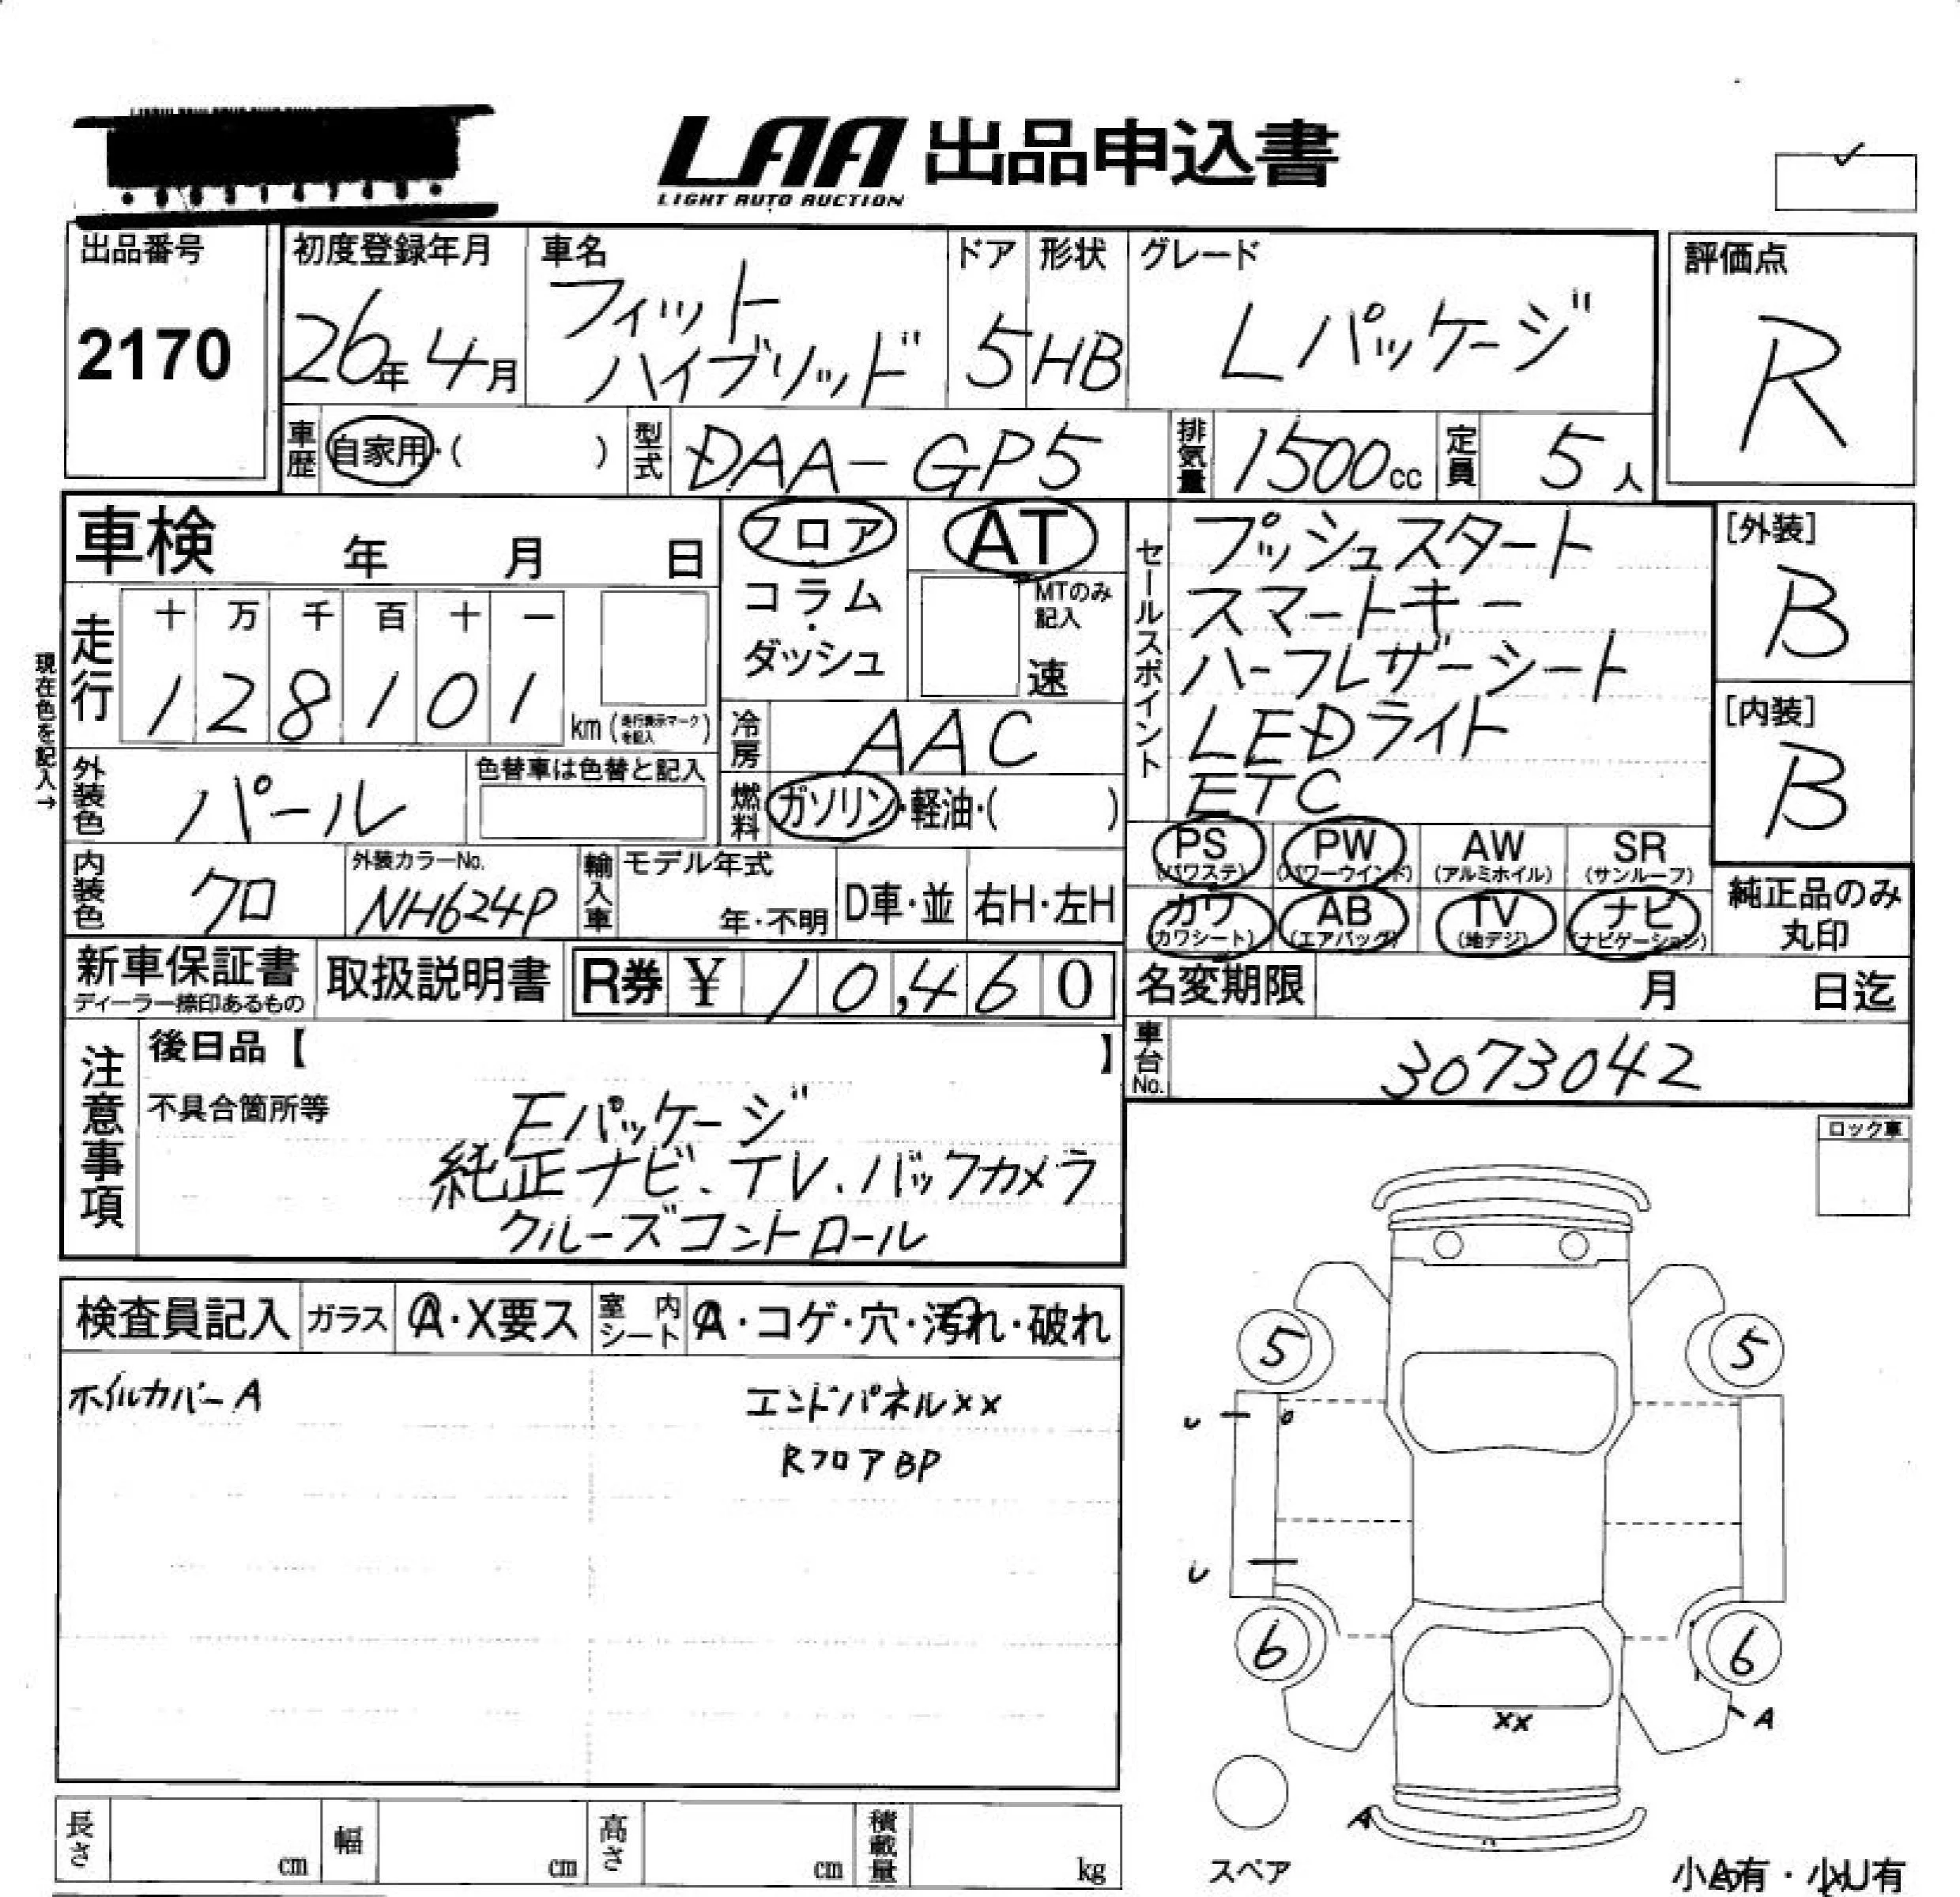 LAA 出品申込書
LIGHT AUTO AUCTION
出品番号
2170
初度登録年月
26年4月
車名
フィット
ハイブリッド
ドア
5
形状
HB
グレード
Lパッケージ
評価点
R
車歴
自家用・( )
型式
DAA-GP5
排気量
1500cc
定員
5人
車検 年 月 日
フロア
コラム
・
ダッシュ
AT
MTのみ
記入
速
セールスポイント
プッシュスタート
スマートキー
ハーフレザーシート
LEDライト
ETC
[外装]
B
[内装]
B
現在色を記入→
走行
十 万 千 百 十 一
1 2 8 1 0 1
km (走行表示マークを記入)
冷房
AAC
外装色
パール
色替車は色替と記入
燃料
ガソリン・軽油・( )
PS
(パワステ)
PW
(パワーウインド)
AW
(アルミホイル)
SR
(サンルーフ)
カワ
(カワシート)
AB
(エアバッグ)
TV
(地デジ)
ナビ
(ナビゲーション)
純正品のみ
丸印
内装色
クロ
外装カラーNo.
NH624P
輸入車
モデル年式
年・不明
D車・並
右H・左H
新車保証書
ディーラー捺印あるもの
取扱説明書
R券 ¥ 10,460
名変期限 月 日迄
車台No.
3073042
注意事項
後日品【 】
不具合箇所等
Fパッケージ
純正ナビ、TV、バックカメラ
クルーズコントロール
ロック車
検査員記入
ガラス
A・X要ス
室内シート
A・コゲ・穴・汚れ・破れ
ホイルカバーA
エンドパネルXX
RフロアBP
5
5
U
U
6
6
XX
A
A
スペア
長さ cm
幅 cm
高さ cm
積載量 kg
小A有・小U有